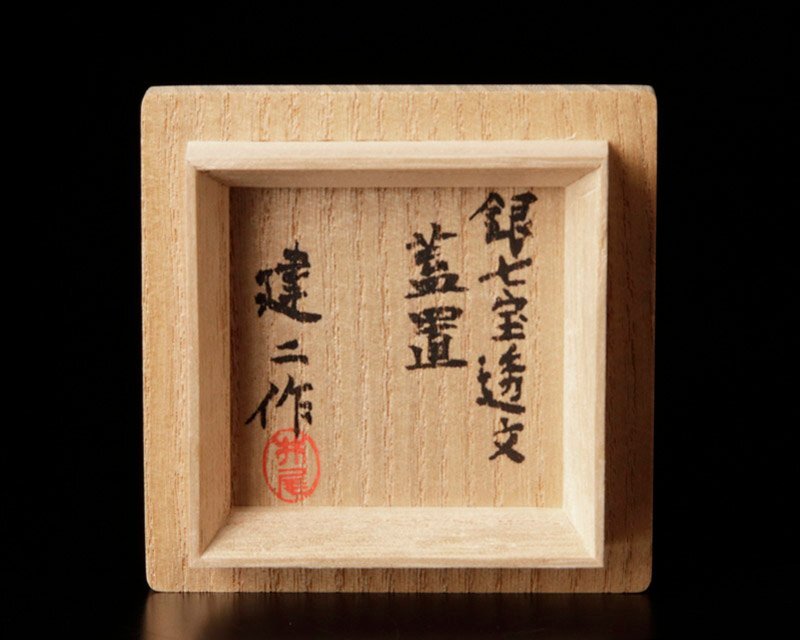 銀七宝透文
蓋置
建二作
井尾